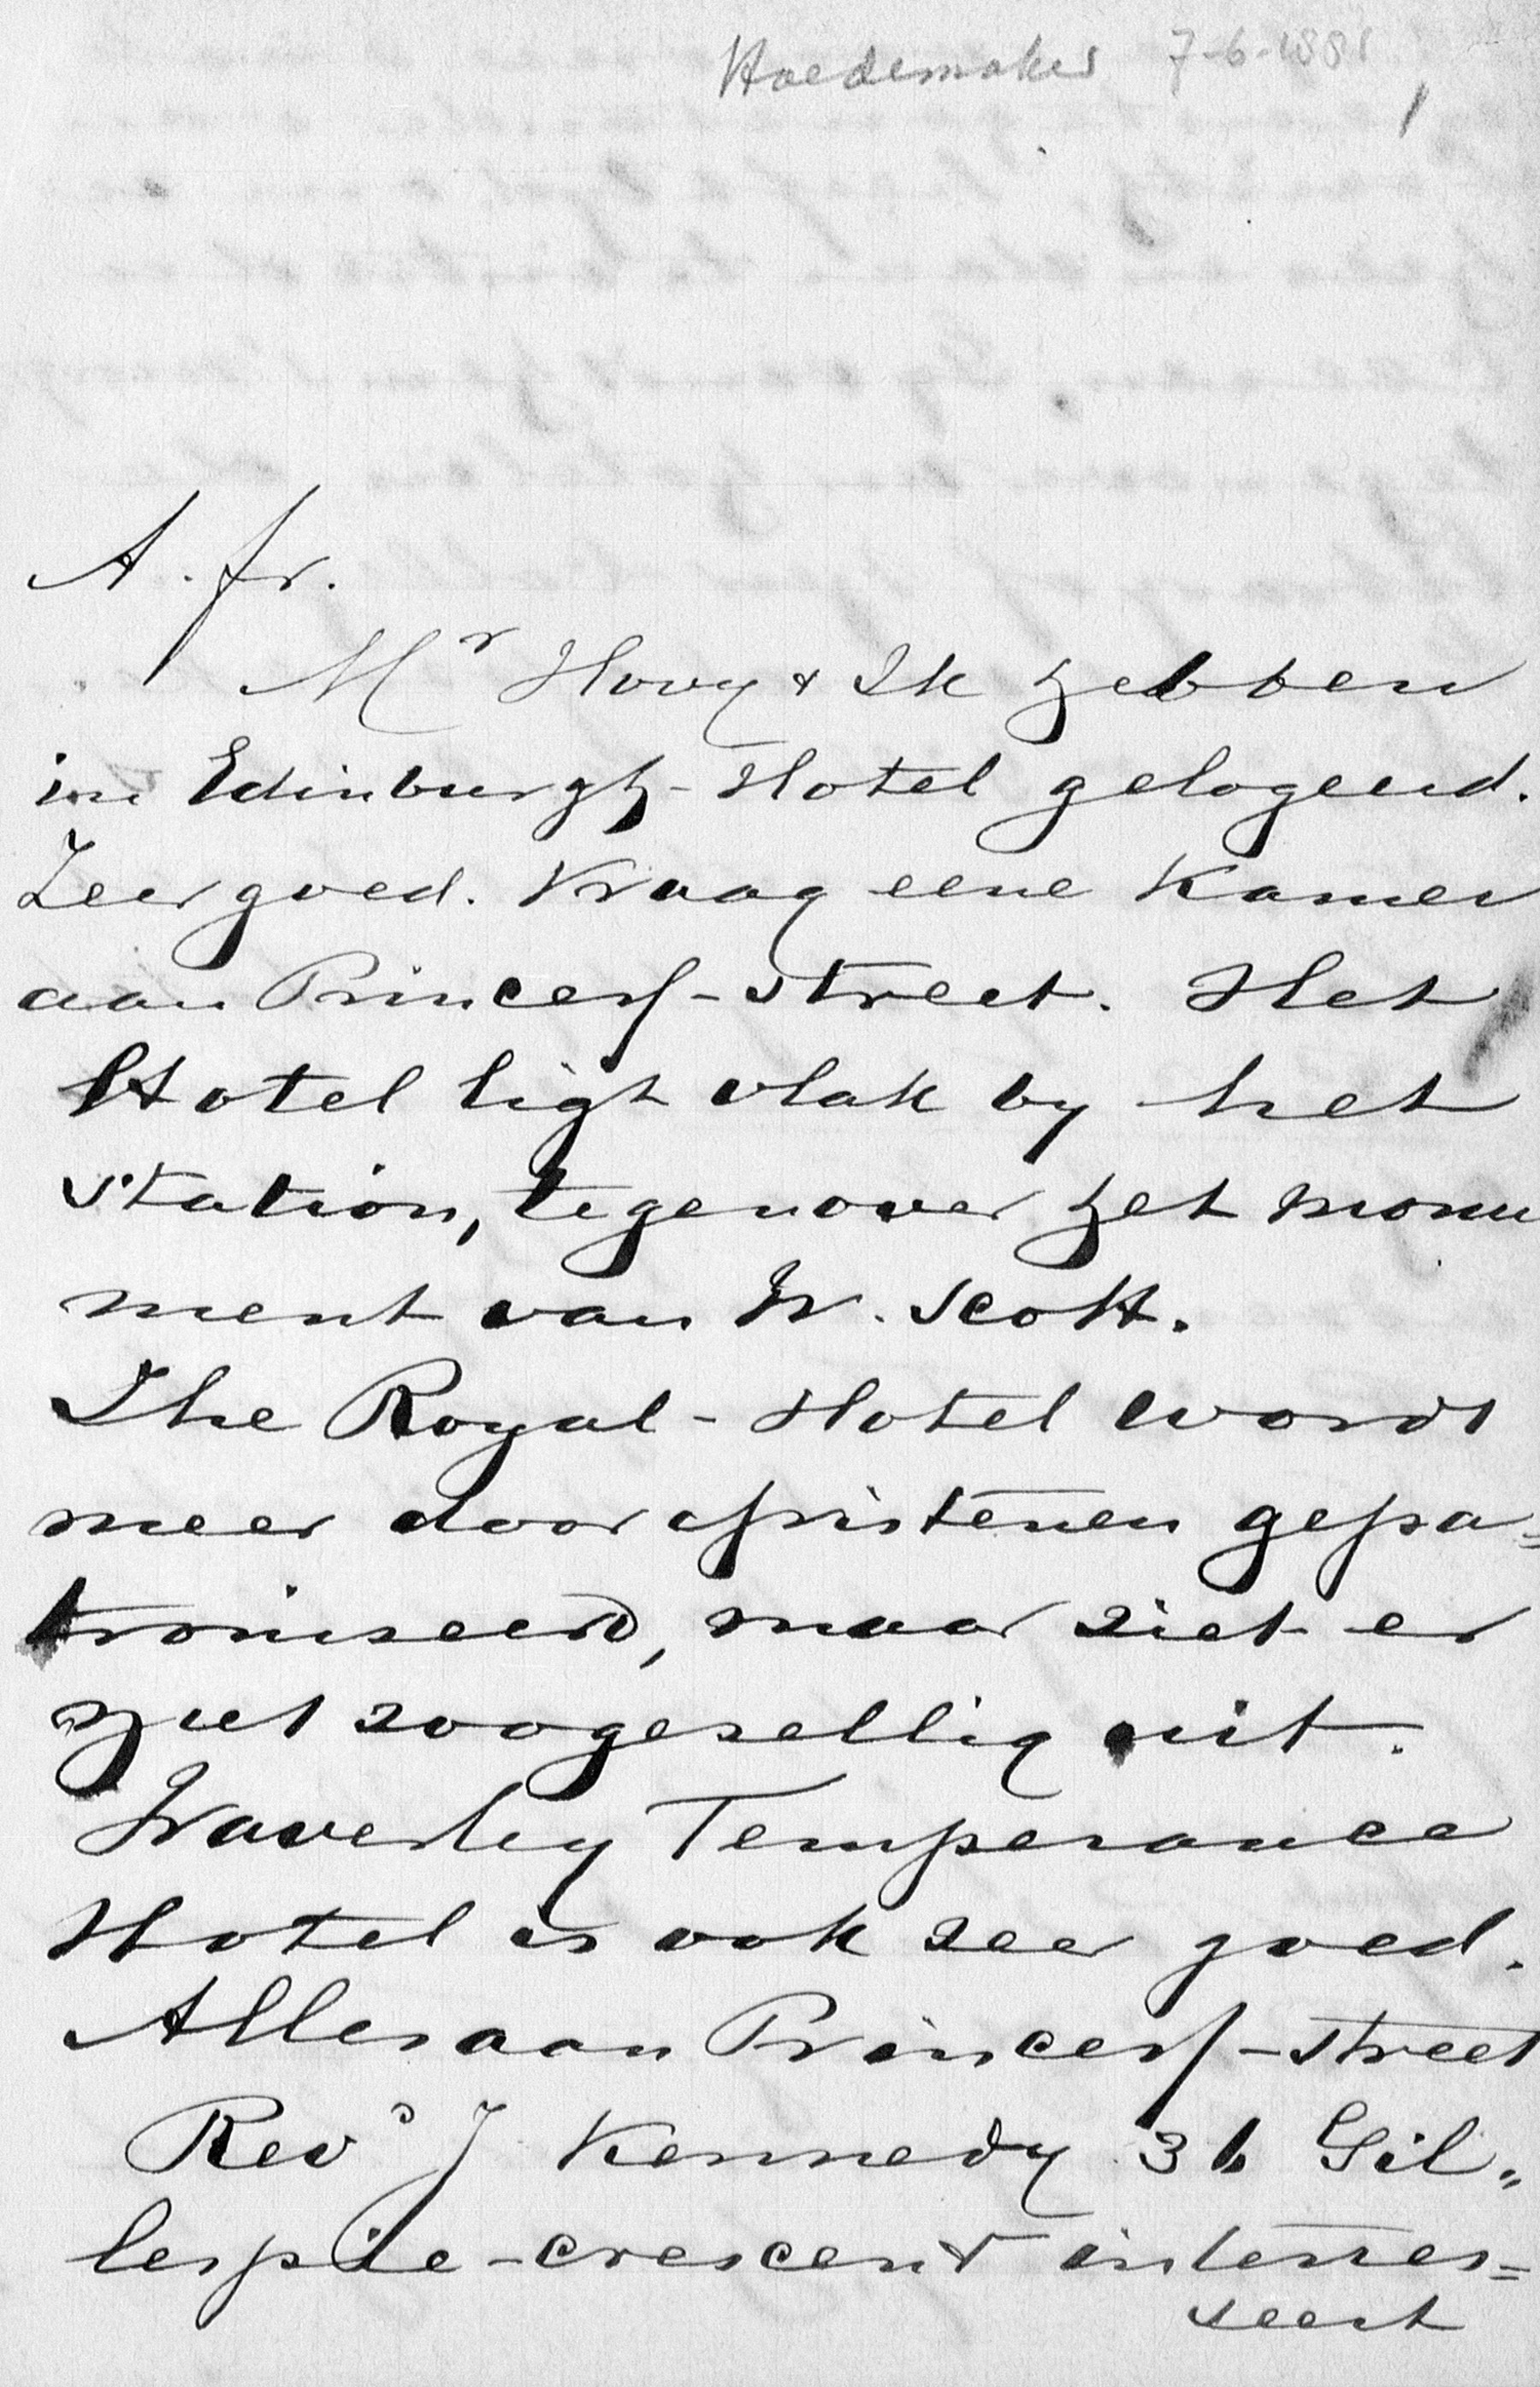 Hoedemaker 7-6-1881
1
A. fr.
Mr Hovy & Ik hebben
in Edinburgh-Hotel gelogeerd.
Zeer goed. Vraag eene Kamer
aan Princess-street. Het
Hotel ligt vlak by het
station, tegenover het monu
ment van W. Scott.
The Royal-Hotel wordt
meer door christenen gepa=
troniseerd, maar ziet er
niet zoogezellig uit.
Waverley Temperance
Hotel is ook zeer goed.
Alles aan Princess-street
Revd J Kennedy 36 Gil„
lespie-crescent interres=
seert